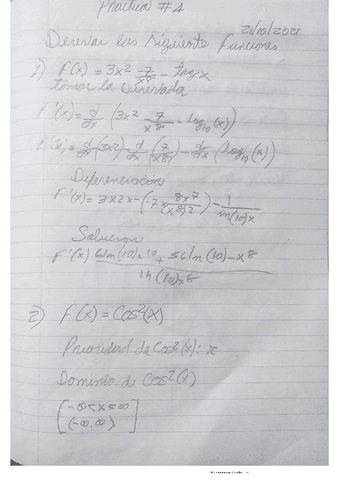 Practica #4
21/10/2021
Derivar las siguiente funciones
1) F(x) = 3x² 7/x⁸ - log x
tomar la Derivada
F'(x) = d/dx (3x² 7/x⁸ - log₁₀(x))
F'(x) = d/dx (3x²) - d/dx (7/x⁸) - d/dx (log₁₀(x))
Diferenciacion
F'(x) = 3x2x - (-7x 8x⁷/(x⁸)2) - 1/ln(10)x
Solucion
F'(x) 6ln(10)x¹⁰ + 56ln(10) - x⁸
ln(10)x⁸
2) F(x) = Cos²(x)
Prioridad de Cos²(x): π
Dominio de Cos²(x)
[-∞<x<∞
(-∞, ∞)]